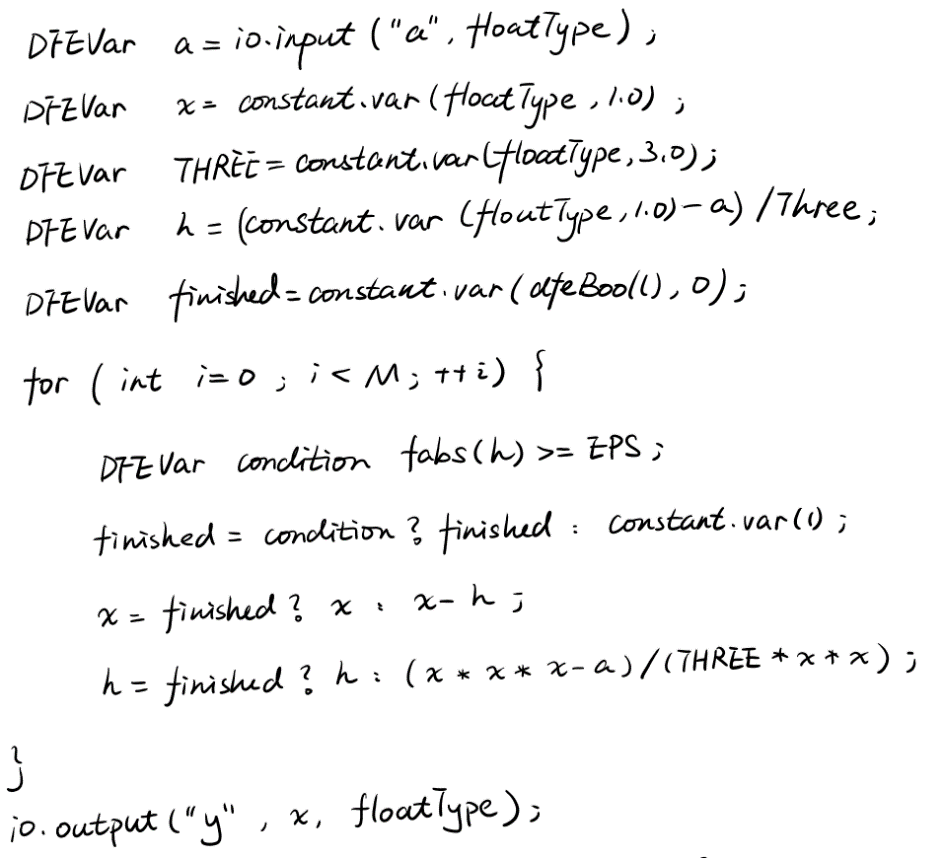 DFEVar a = io.input ("a", floatType) ;
DFEVar x = constant.var (floatType , 1.0) ;
DFEVar THREE = constant.var (floatType, 3.0) ;
DFEVar h = (constant. var (floatType, 1.0) - a) / Three ;
DFEVar finished = constant.var ( dfeBool(), 0) ;
for ( int i=0 ; i < M ; ++i) {
DFEVar condition fabs(h) >= EPS ;
finished = condition ? finished : constant.var(1) ;
x = finished ? x : x - h ;
h = finished ? h : ( x * x * x - a) / (THREE * x * x) ;
}
io. output ("y" , x, floatType) ;